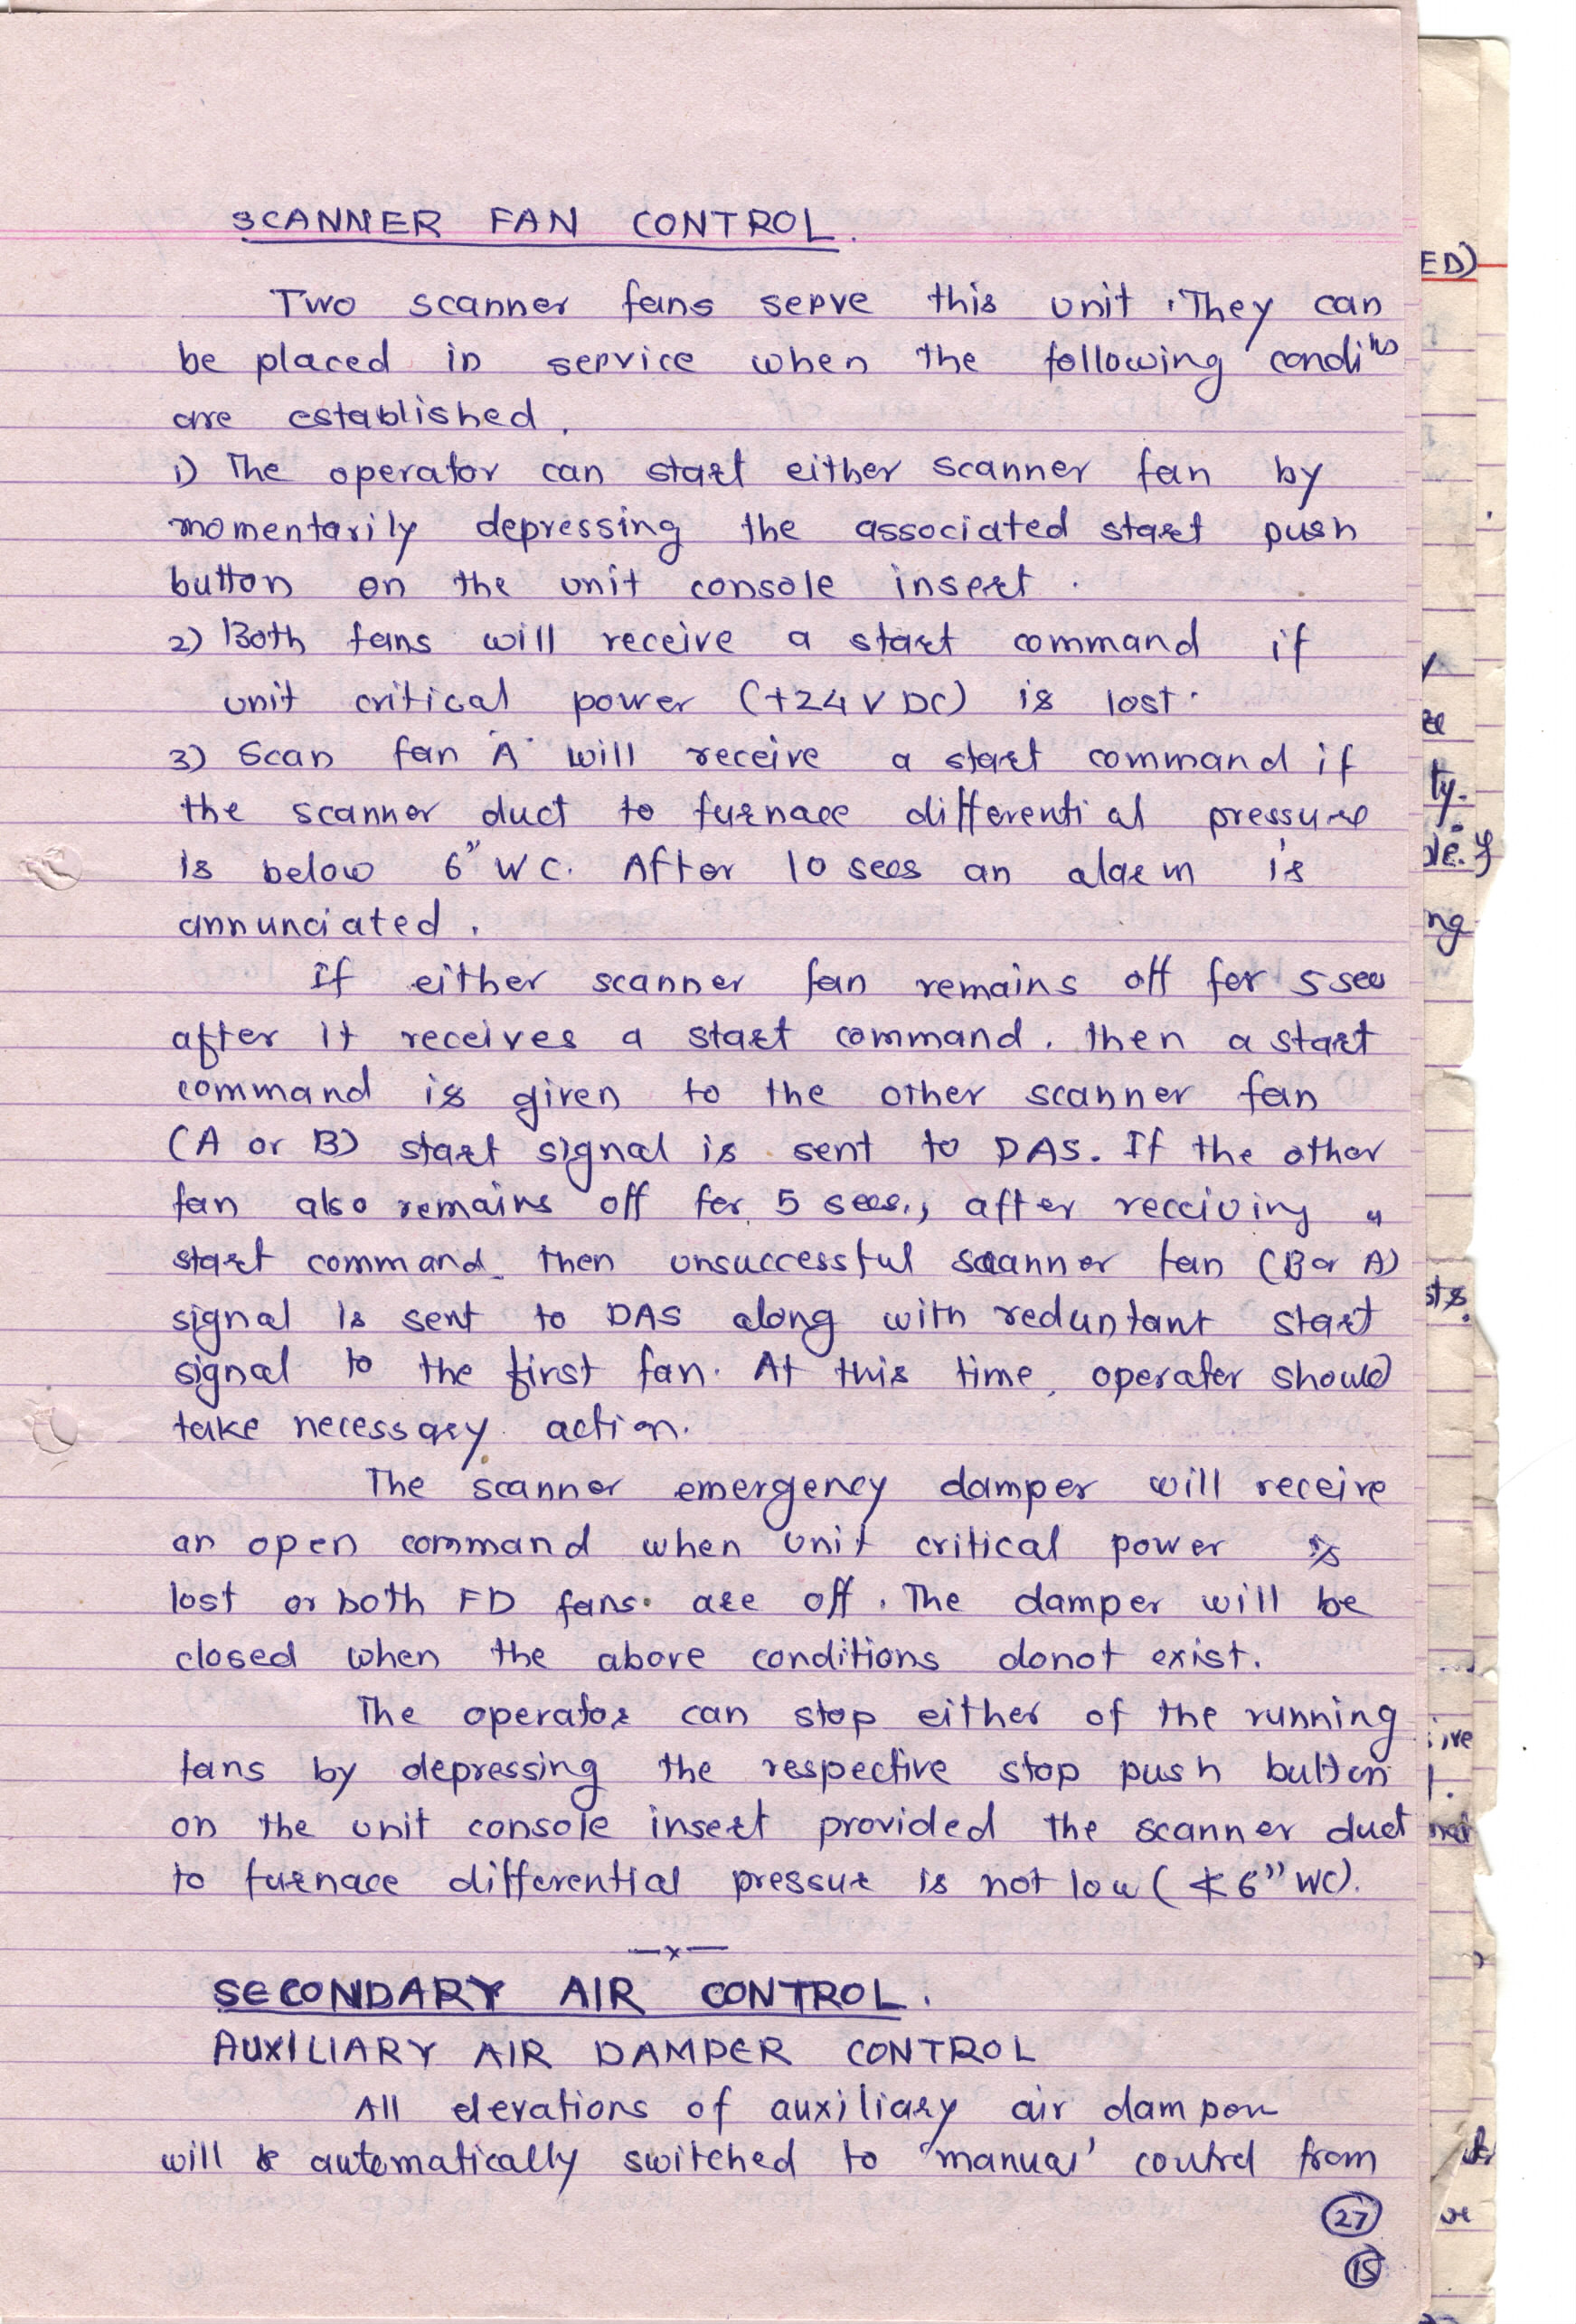 SCANNER FAN CONTROL.
Two scanner fans serve this unit. They can
be placed in service when the following conditns
are established.
1) The operator can start either scanner fan by
momentarily depressing the associated start push
button on the unit console insert.
2) Both fans will receive a start command if
unit critical power (+24 V DC) is lost.
3) Scan fan 'A' will receive a start command if
the scanner duct to furnace differential pressure
is below 6" WC. After 10 secs an alarm is
annunciated.
If either scanner fan remains off for 5 secs
after it receives a start command, then a start
command is given to the other scanner fan
(A or B) start signal is sent to DAS. If the other
fan also remains off for 5 secs., after receiving a
start command, then unsuccessful scanner fan (B or A)
signal is sent to DAS along with reduntant start
signal to the first fan. At this time, operator should
take necessary action.
The scanner emergency damper will receive
an open command when unit critical power is
lost or both FD fans are off. The damper will be
closed when the above conditions donot exist.
The operator can stop either of the running
fans by depressing the respective stop push button
on the unit console insert provided the scanner duct
to furnace differential pressure is not low (≮ 6" WC).
—x—
SECONDARY AIR CONTROL.
AUXILIARY AIR DAMPER CONTROL
All elevations of auxiliary air damper
will be automatically switched to 'manual' control from
27
15
ED)
ty.
ng
sts.
ive